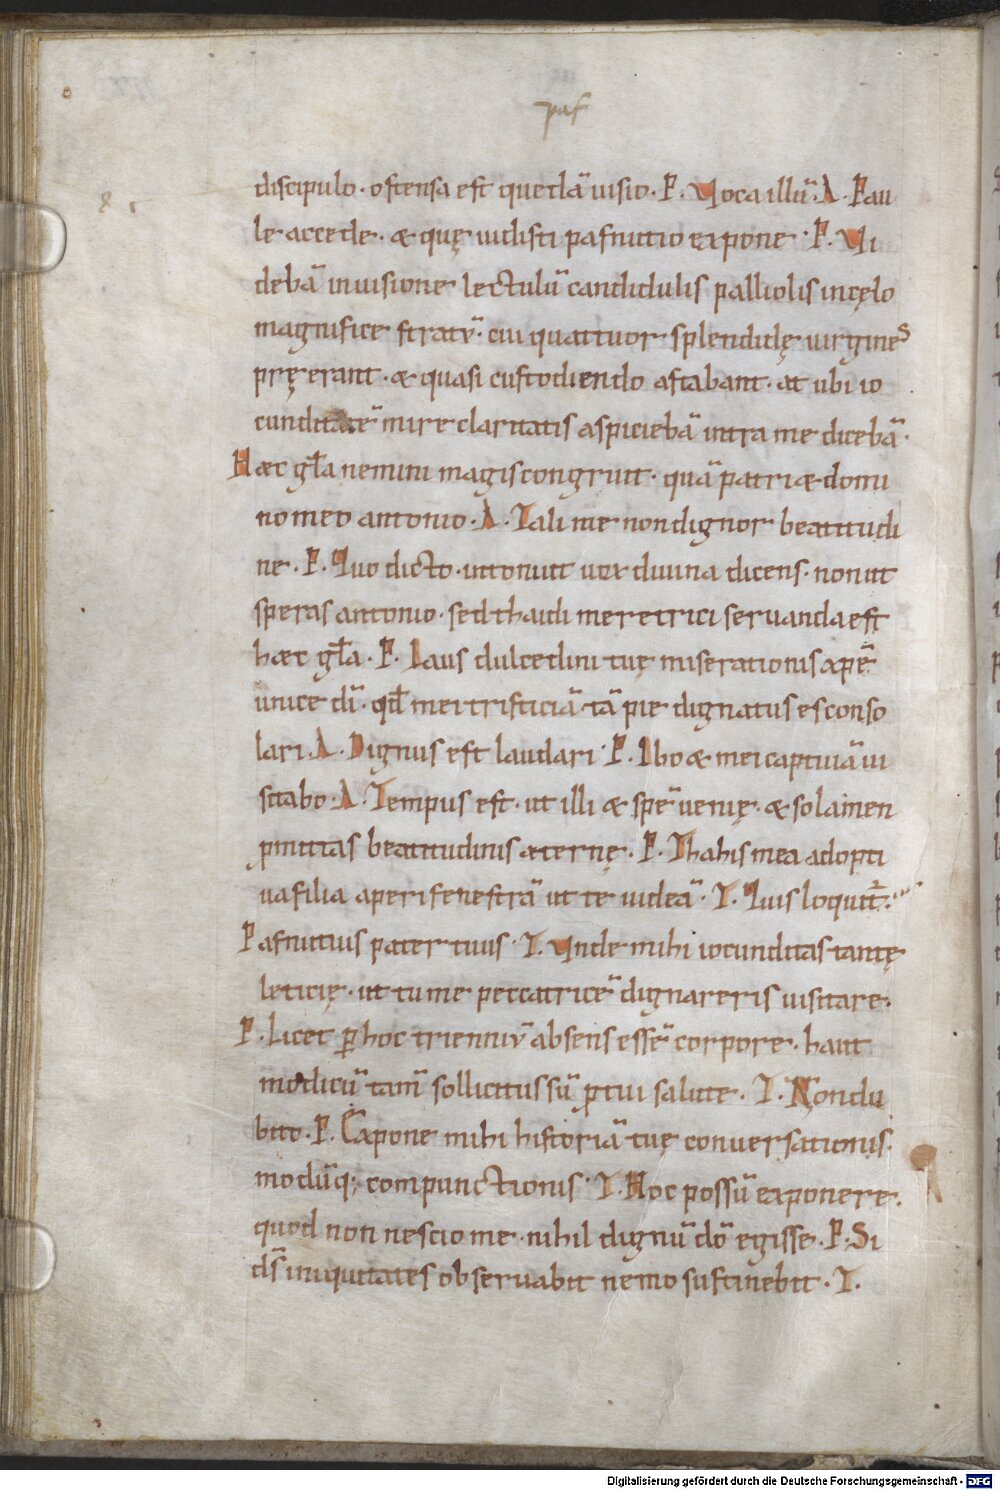 paf
discipulo · ostensa est quedā uisio · P · Voca illū · A · Pau
le accede · & quę uidisti pafnutio expone · P · Vi
debā in uisione lectulū candidulis palliolis in cęlo
magnifice stratū · cui quattuor splendidę uirgines
pręerant · & quasi custodiendo astabant · at ubi io
cunditatē mire claritatis aspiciebā intra me dicebā ·
Hæc gła nemini magis congruit · quā patri & domi
no meo antonio · A · Tali me non dignor beatitudi
ne · P · Quo dicto · intonuit uox diuina dicens · non ut
speras antonio · sed thaidi meretrici seruanda est
hæc gła · P · Laus dulcedini tuę miserationis xp̄e
unice dī · qđ mei tristiciā tā pie dignatus es conso
lari · A · Dignus est laudari · P · Ibo & mei captiuā ui
sitabo · A · Tempus est · ut illi & spē uenię · & solamen
pmittas beatitudinis æternę · P · Thahis mea adopti
ua filia aperi fenestrā ut te uideā · T · Quis loquit̄ ·
Pafnutius pater tuus · T · Vnde mihi iocunditas tantę
leticię · ut tu me peccatricē dignareris uisitare ·
P · Licet p̱ hoc trienniū absens essē corpore · haut
modicū tam̄ sollicitus sū p̱ tui salute · T · Non du
bito · P · Expone mihi historiā tuę conuersationis ·
modūq; compunctionis · T · Hoc possū exponere ·
quod non nescio me · nihil dignū dō egisse · P · Si
ds̄ iniquitates obseruabit nemo sustinebit · T ·
Digitalisierung gefördert durch die Deutsche Forschungsgemeinschaft · DFG